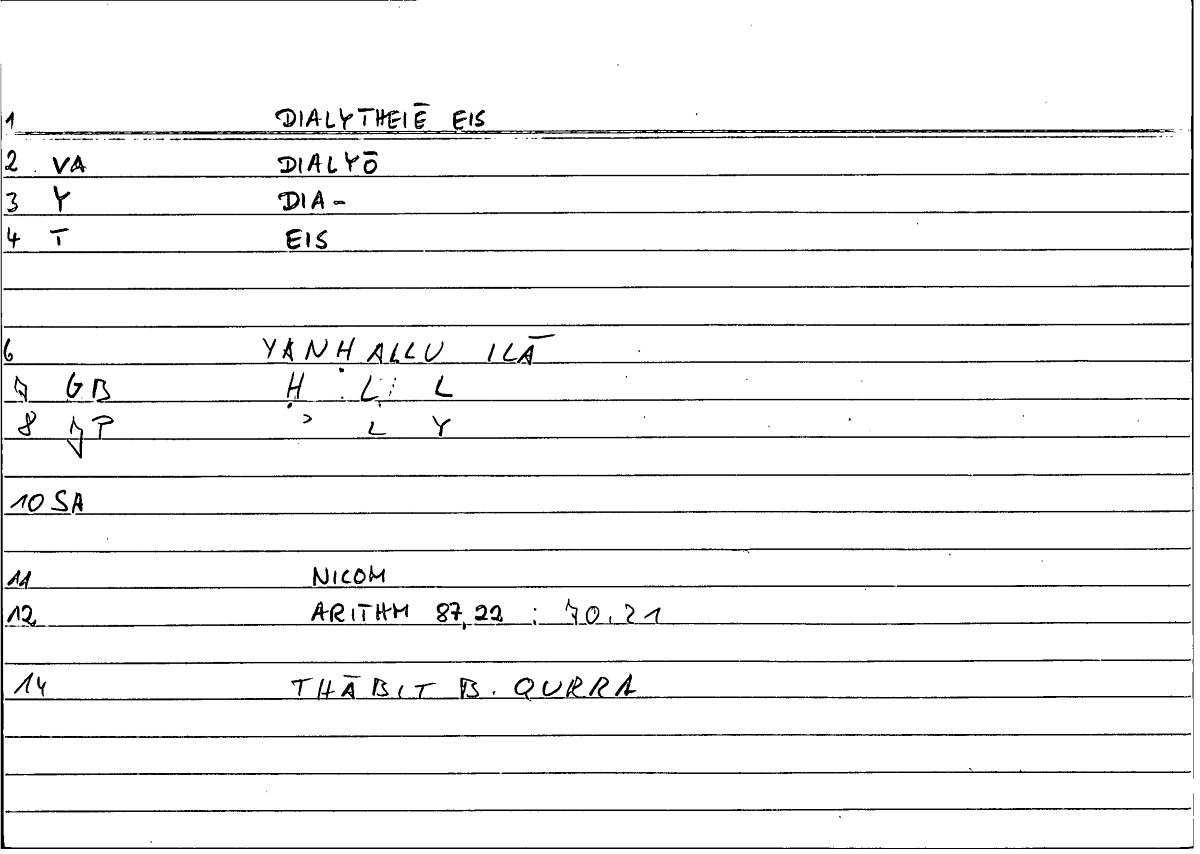 1 DIALYTHEIĒ EIS
2 VA DIALYŌ
3 Y DIA-
4 T EIS
6 YANḤALLU ILĀ
7 GB Ḥ L L
8 JP ʾ L Y
10 SA
11 NICOM
12 ARITHM 87,22 : 70,21
14 THĀBIT B. QURRA